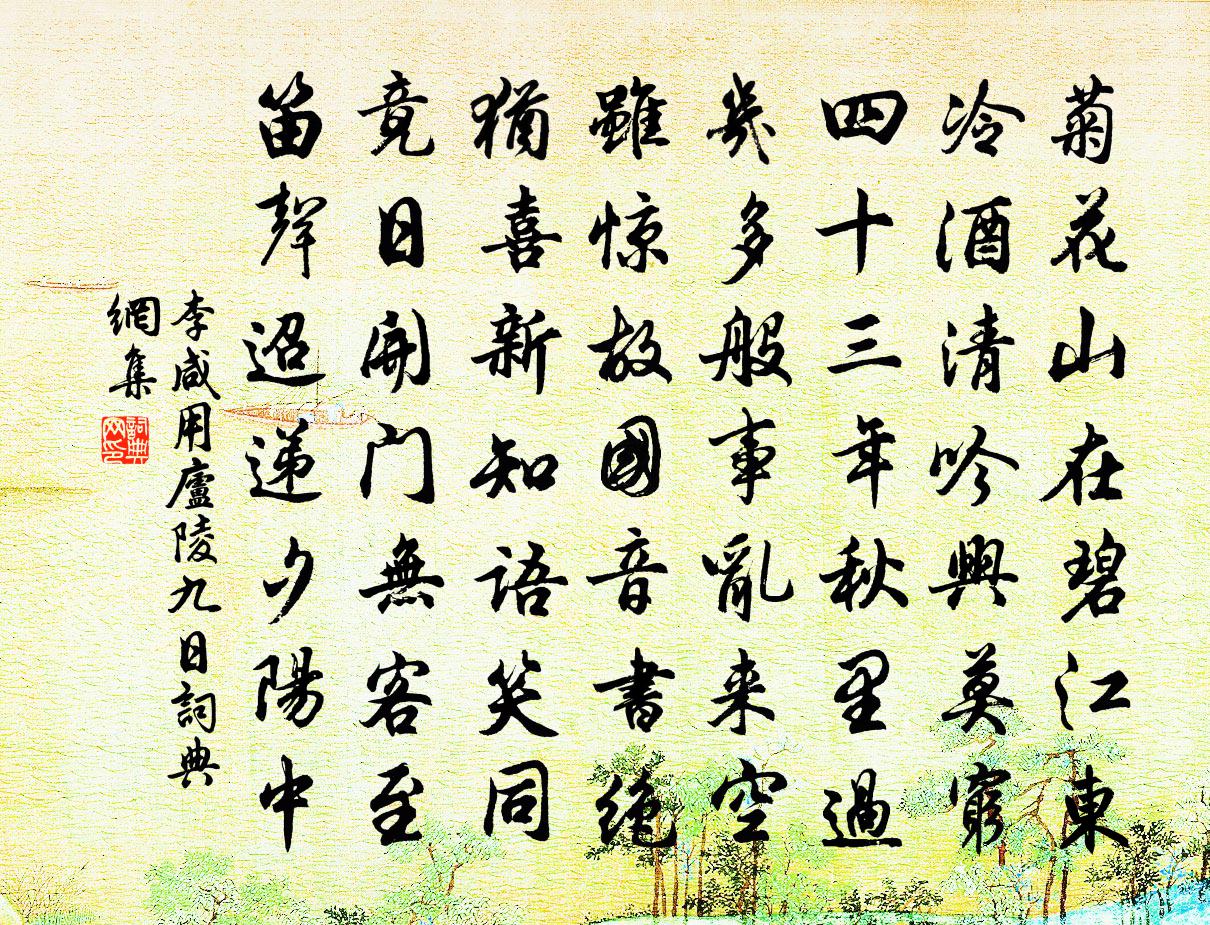 菊花山在碧江東
冷酒清吟興莫窮
四十三年秋里過
幾多般事亂来空
雖惊故國音書絶
猶喜新知語笑同
竟日開門無客至
笛聲迢递夕陽中
李咸用廬陵九日詞典
網集
詞典
网印